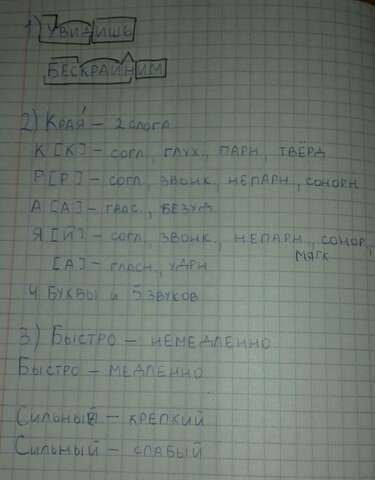 1) УВИДИШЬ
БЕСКРАЙНИМ
2) КРАЯ́ – 2 СЛОГА
К [К] – СОГЛ., ГЛУХ., ПАРН., ТВЁРД
Р [Р] – СОГЛ, ЗВОНК., НЕПАРН., СОНОРН
А [А] – ГЛАС., БЕЗУД
Я [Й] – СОГЛ, ЗВОНК., НЕПАРН, СОНОР,
МЯГК
[А] – ГЛАСН., УДРН
4 БУКВЫ И 5 ЗВУКОВ
3) БЫСТРО – НЕМЕДЛЕННО
БЫСТРО – МЕДЛЕННО
СИЛЬНЫЙ – КРЕПКИЙ
СИЛЬНЫЙ – СЛАБЫЙ